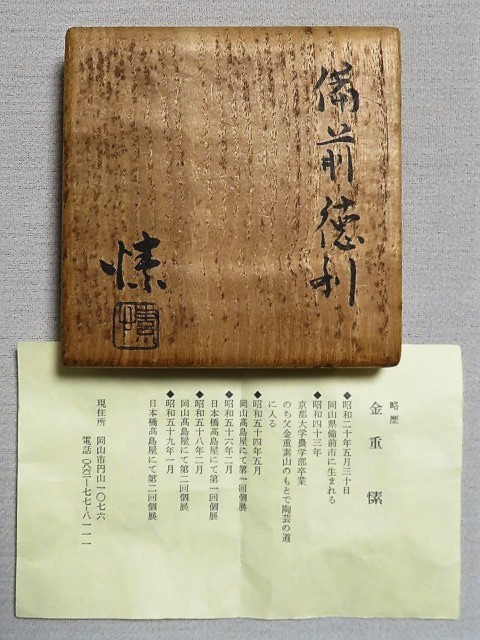 備前徳利
愫
略歴
金重愫
◆昭和二十年五月三十日
岡山県備前市に生まれる
◆昭和四十三年
京都大学農学部卒業
のち父金重素山のもとで陶芸の道
に入る
◆昭和五十四年五月
岡山髙島屋にて第一回個展
◆昭和五十六年二月
日本橋髙島屋にて第一回個展
◆昭和五十八年二月
岡山髙島屋にて第二回個展
◆昭和五十九年一月
日本橋髙島屋にて第二回個展
現住所 岡山市円山一〇七六